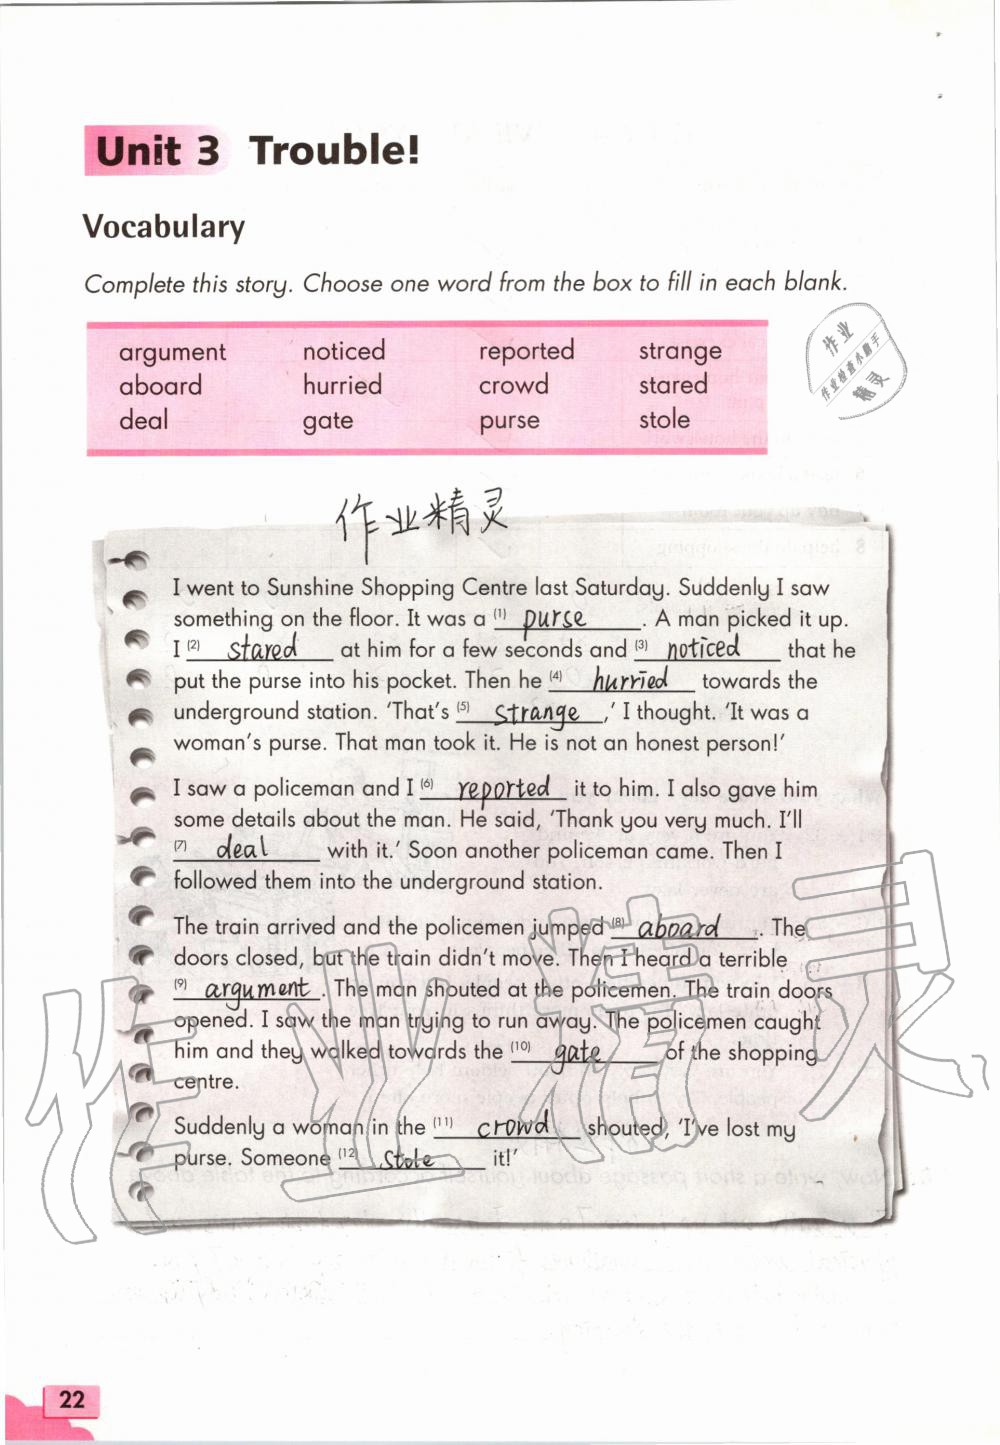 Unit 3 Trouble!
Vocabulary
Complete this story. Choose one word from the box to fill in each blank.
argument noticed reported strange
aboard hurried crowd stared
deal gate purse stole
作业
作业检查小助手
精灵
作业精灵
I went to Sunshine Shopping Centre last Saturday. Suddenly I saw
something on the floor. It was a (1) purse . A man picked it up.
I (2) stared at him for a few seconds and (3) noticed that he
put the purse into his pocket. Then he (4) hurried towards the
underground station. ‘That’s (5) strange ,’ I thought. ‘It was a
woman’s purse. That man took it. He is not an honest person!’
I saw a policeman and I (6) reported it to him. I also gave him
some details about the man. He said, ‘Thank you very much. I’ll
(7) deal with it.’ Soon another policeman came. Then I
followed them into the underground station.
The train arrived and the policemen jumped (8) aboard . The
doors closed, but the train didn’t move. Then I heard a terrible
(9) argument . The man shouted at the policemen. The train doors
opened. I saw the man trying to run away. The policemen caught
him and they walked towards the (10) gate of the shopping
centre.
Suddenly a woman in the (11) crowd shouted, ‘I’ve lost my
purse. Someone (12) stole it!’
作业精灵
22